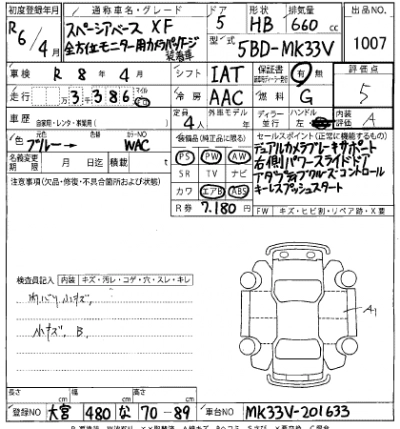 初度登録年月 通称車名・グレード ドア 形状 排気量 出品NO
R 6/4月 スペーシアベース XF 5 HB 660 cc 1007
全方位モニター用カメラパッケージ装着車 型式 5BD-MK33V
車検 R 8年 4月 シフト IAT 保証書 有 無 評価点
走行 3万3,386 冷房 AAC 燃料 G 5
車歴 自家用・レンタ・事業用( ) 定員 4人 外車モデル 年 ディーラー 並行 ハンドル 左 内装評価 A
色 元色 ブルー→ カラーNO WAC 装備品(純正品に限る) セールスポイント(正常に機能するもの)
名義変更期限 月 日迄 積載 t PS PW AW デュアルカメラブレーキサポート
注意事項(欠品・修復・不具合箇所および状態) SR TV ナビ 右側パワースライドドア
カワ エアB ABS アダプティブクルーズコントロール
R券 7,180円 キーレスプッシュスタート
FW キズ・ヒビ割・リペア跡・X要
検査員記入 内装 キズ・汚レ・コゲ・穴・スレ・キレ
小キズ、B. A1
長さ cm 幅 cm 高さ cm
登録NO 大宮 480 な 70-89 車台NO MK33V-201633